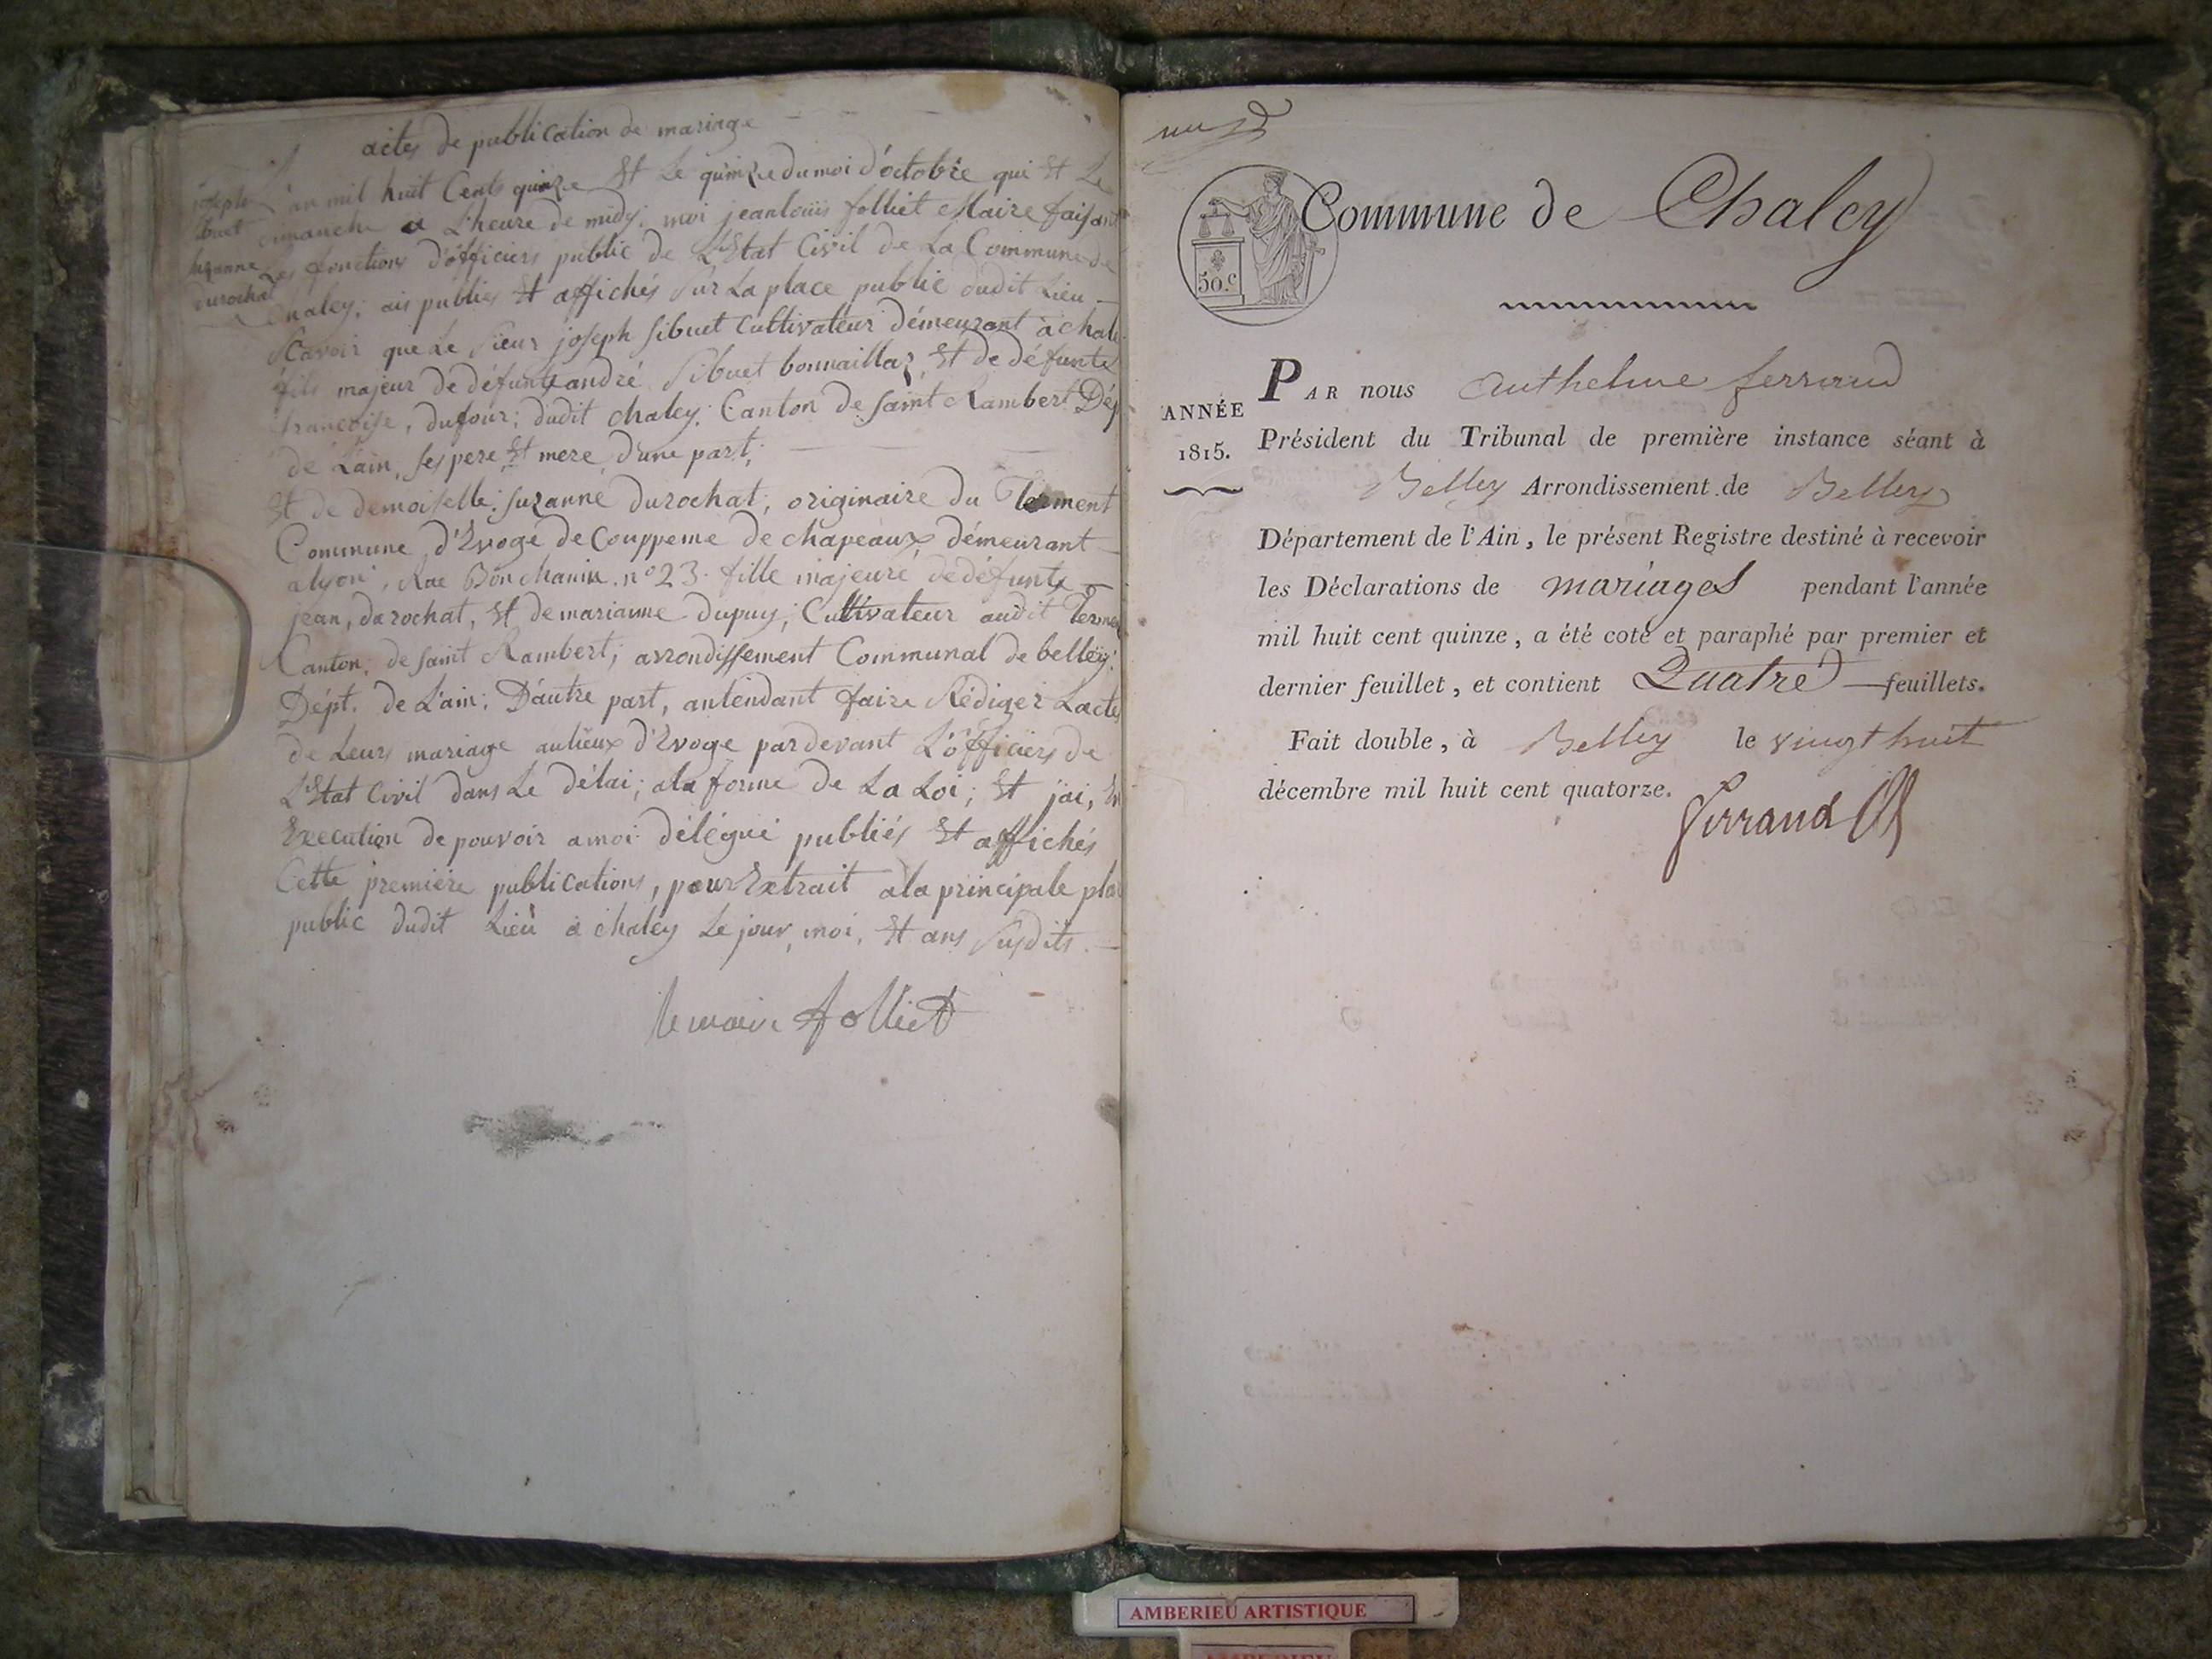 actes de publication de mariage
joseph
sibuet
suzanne
durochat
L'an mil huit Cents quinze Et Le quinze du moi d'octobre qui Et Le
dimanche a L'heure de midy; moi jean louis folliet Maire faisant
Les fonctions d'officiers public de L'Etat Civil de La Commune de
Chaley; ais publies Et affichés Sur La place public dudit Lieu
Scavoir que Le Sieur joseph Sibuet Cultivateur démeurant à chale
fils majeur de défunt andré Sibuet bonnaillaz, Et de défunte
francoise, dufour; dudit chaley. Canton de saint Rambert Dép
de L'ain, ses pere Et mere, D'une part;
Et de demoiselle suzanne durochat, originaire du Terment
Commune d'Evoge de Couppeme de chapeaux, démeurant
a lyon, Rue Bonchanin. n° 23. fille majeure de défunte
jean, darochat, Et de marianne dupuy; Cultivateur audit Termen
Canton. de saint Rambert; arrondissement Communal de belley.
Dépt. de L'ain; D'autre part, antendant faire Rédiger Lacte
de Leurs mariage aulieux d'Evoge par devant L'officiers de
L'Etat Civil dans Le Délai; a la forme de La Loi; Et jai, En
Execution de pouvoir a moi délégué publiés Et affichés
Cette première publications, pour Extrait a la principale plac
public dudit Lieu à chaley Le jour, moi, Et ans Susdits.
le maire folliet
Commune de Chaley
50.c
ANNÉE
1815.
PAR nous Anthelme ferrand
Président du Tribunal de première instance séant à
Belley Arrondissement de Belley
Département de l'Ain, le présent Registre destiné à recevoir
les Déclarations de mariages pendant l'année
mil huit cent quinze, a été coté et paraphé par premier et
dernier feuillet, et contient Quatre feuillets.
Fait double, à Belley le vingt huit
décembre mil huit cent quatorze.
Ferrand
AMBERIEU ARTISTIQUE
AMBERIEU